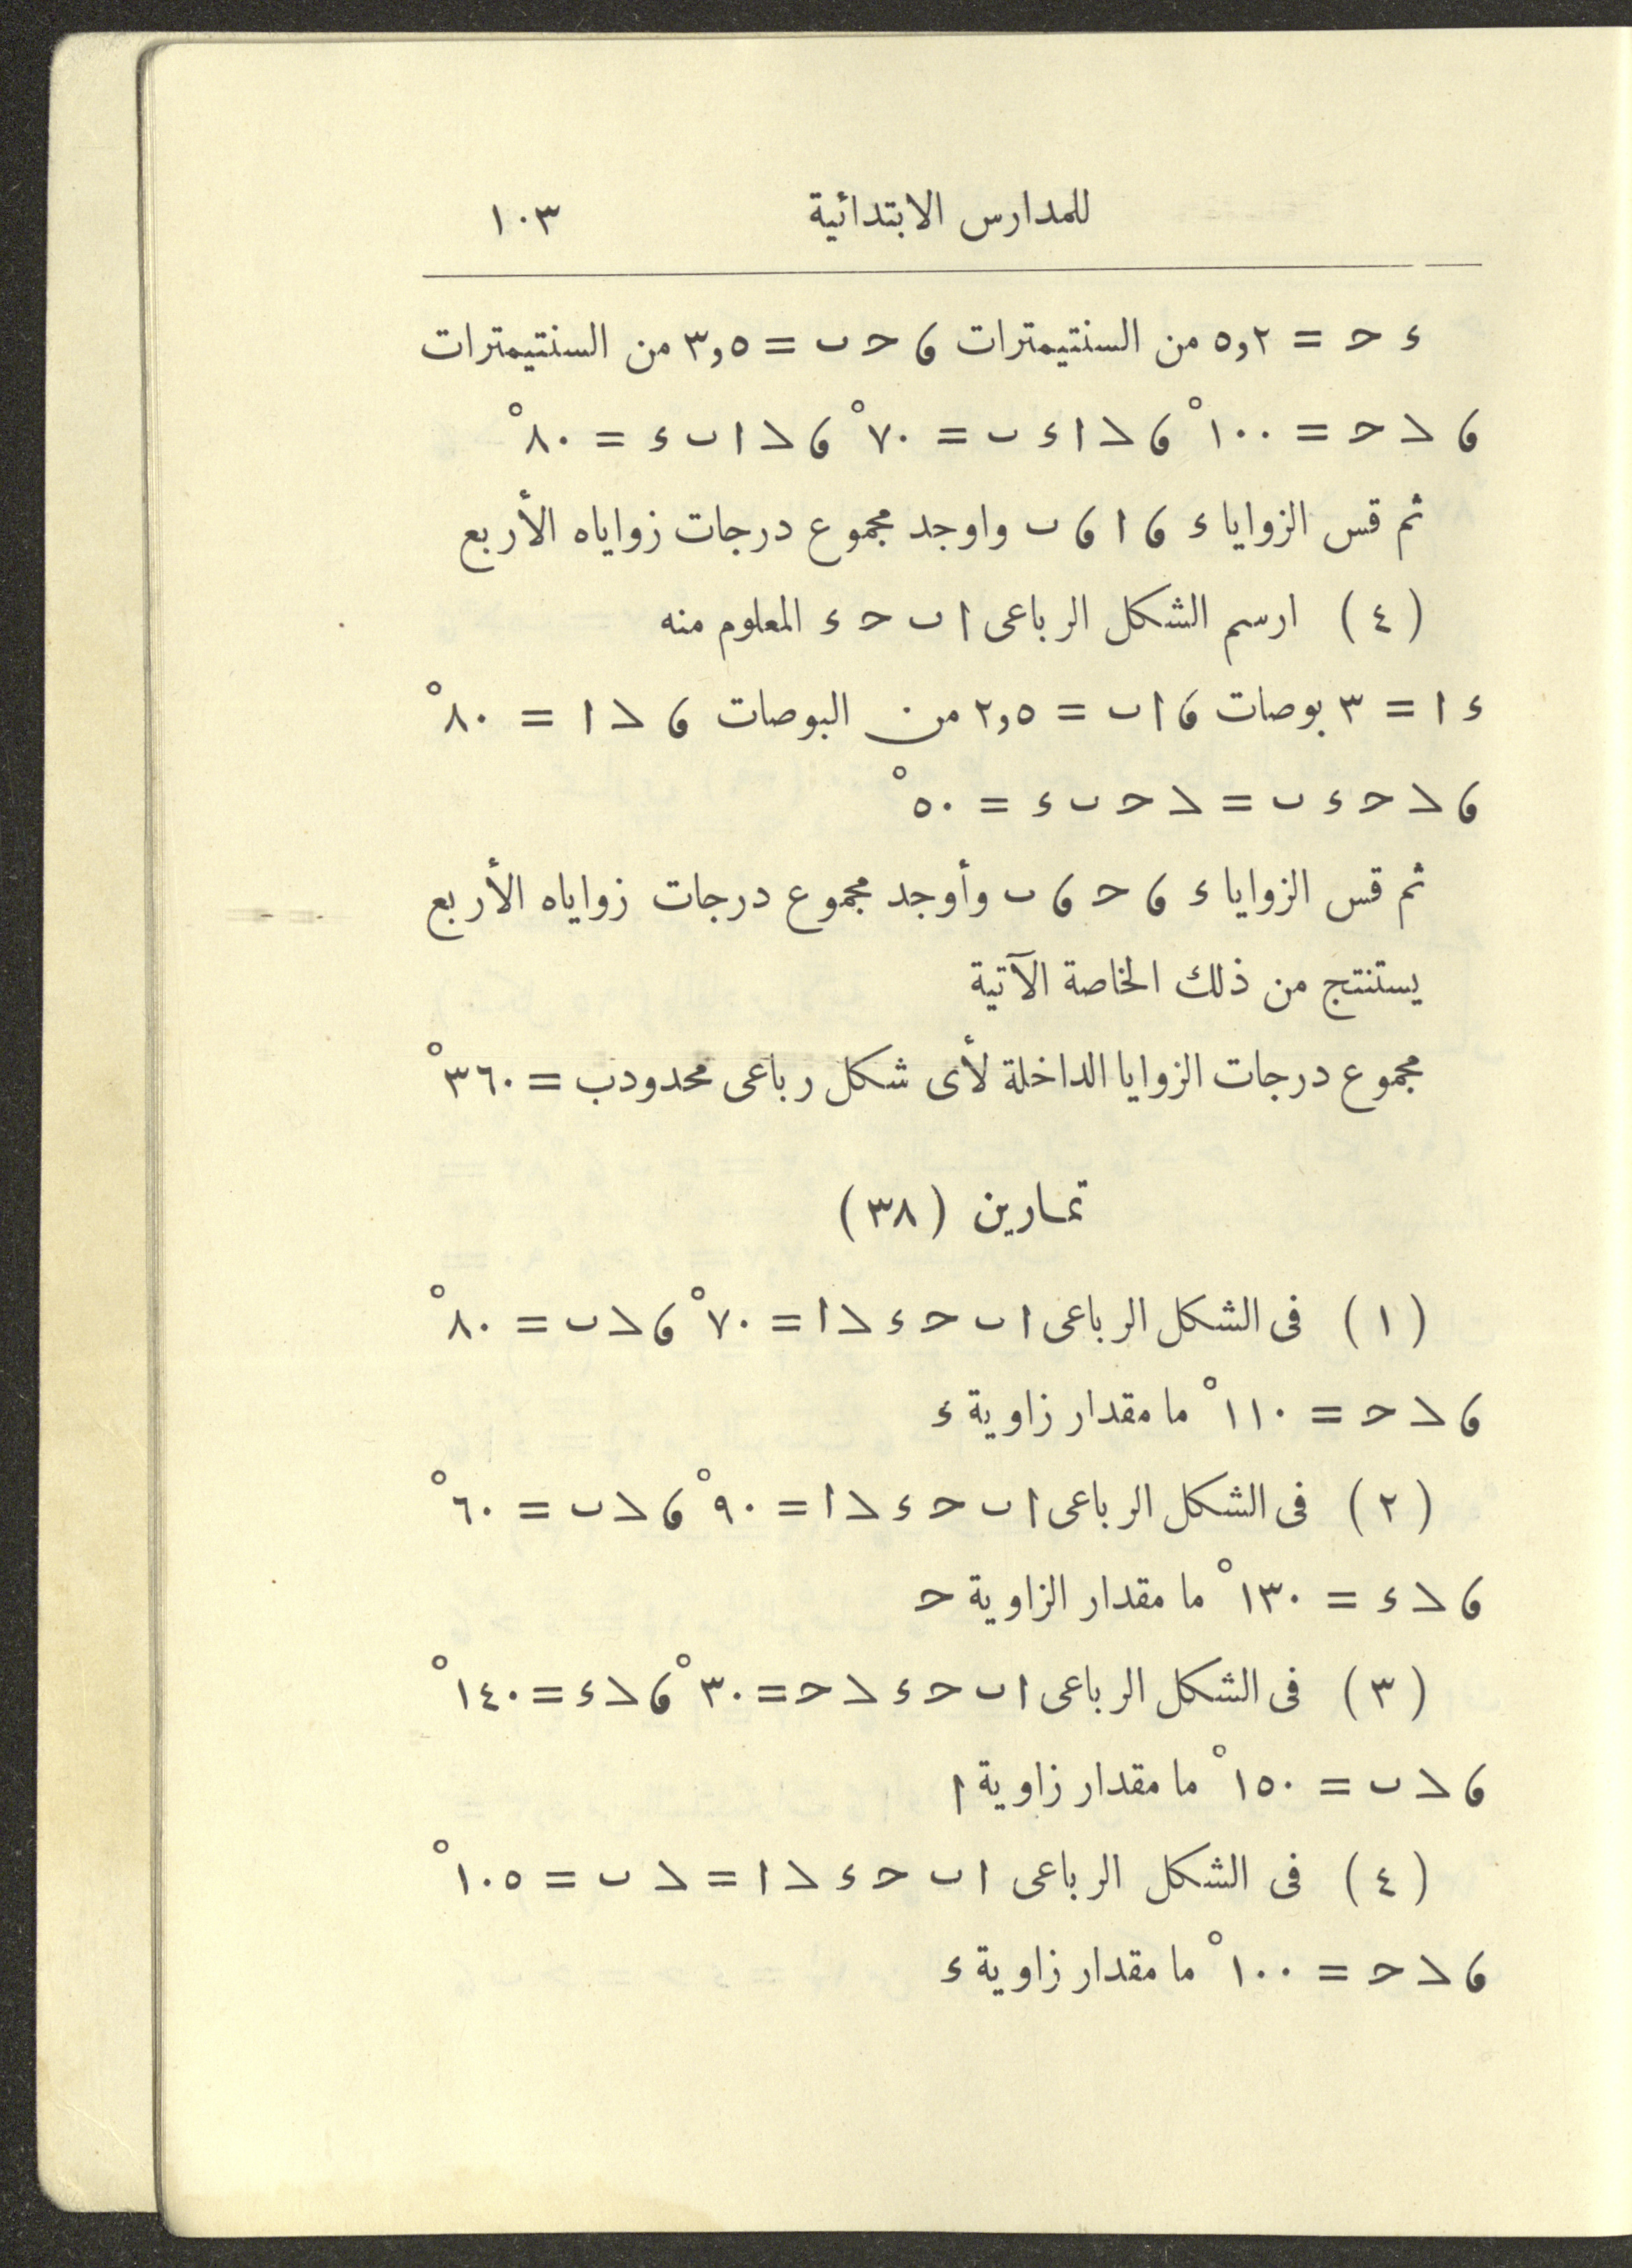 للمدارس الابتدائية ١٠٣
ء ح = ٥,٢ من السنتيمترات ６ ح ب = ٣,٥ من السنتيمترات
６ > ح = ١٠٠° ６ > ا ء ب = ٧٠° ６ > ا ب ء = ٨٠°
ثم قس الزوايا ء ６ ا ６ ب واوجد مجموع درجات زواياه الأربع
(٤) ارسم الشكل الرباعى ا ب ح ء المعلوم منه
ء ا = ٣ بوصات ６ ا ب = ٢,٥ من البوصات ６ > ا = ٨٠°
６ > ح ء ب = > ح ب ء = ٥٠°
ثم قس الزوايا ء ６ ح ６ ب وأوجد مجموع درجات زواياه الأربع
يستنتج من ذلك الخاصة الآتية
مجموع درجات الزوايا الداخلة لأى شكل رباعى محدودب = ٣٦٠°
تمارين (٣٨)
(١) فى الشكل الرباعى ا ب ح ء > ا = ٧٠° ６ > ب = ٨٠°
６ > ح = ١١٠° ما مقدار زاوية ء
(٢) فى الشكل الرباعى ا ب ح ء > ا = ٩٠° ６ > ب = ٦٠°
６ > ء = ١٣٠° ما مقدار الزاوية ح
(٣) فى الشكل الرباعى ا ب ح ء > ح = ٣٠° ６ > ء = ١٤٠°
６ > ب = ١٥٠° ما مقدار زاوية ا
(٤) فى الشكل الرباعى ا ب ح ء > ا = > ب = ١٠٥°
６ > ح = ١٠٠° ما مقدار زاوية ء